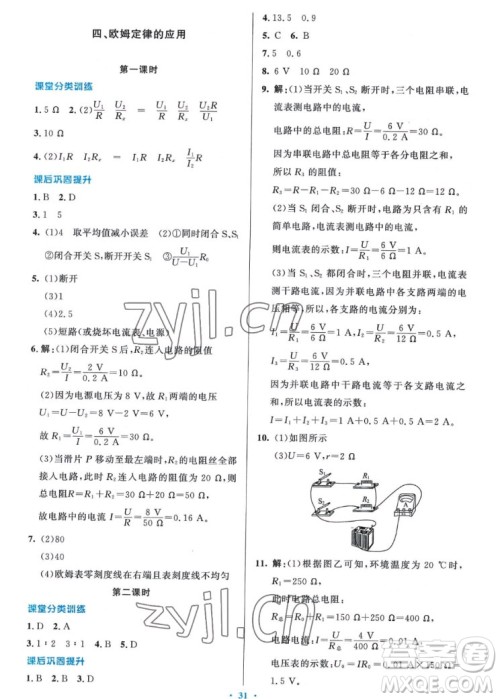 四、欧姆定律的应用
第一课时
课堂分类训练
1. 5 Ω 2. (2) U₁/R U₂/Rₓ = U₁/R = U₂/Rₓ
3. 10 Ω
4. (2) I₁R I₂Rₓ = I₁R = I₂Rₓ I₁/I₂R
课后巩固提升
1. B 2. D
3. 1 5
4. (1)4 取平均值减小误差 (2)①同时闭合 S、S₁
②闭合开关 S、断开开关 S₁ U₁/(U−U₁)R₀
7. (1)断开
(3)1
(4)2.5
(5)短路(或烧坏电流表、电源)
5. 解:(1)闭合开关 S 后,R₂ 连入电路的阻值
R₂=U₂/I=2 V/0.2 A=10 Ω。
(2)因为电源电压为 8 V,所以 R₁ 两端的电压
U₁=U−U₂=8 V−2 V=6 V,
故 R₁=U₁/I=6 V/0.2 A=30 Ω。
(3)当滑片 P 移动至最左端时,R₂ 的电阻丝全部
接入电路,此时 R₂ 接入电路的阻值为 20 Ω,
故电路的总电阻 R=R₁+R₂=30 Ω+20 Ω=50 Ω,
故电路中的电流 I=U/R=8 V/50 Ω=0.16 A。
6. (2)80
(3)40
(4)欧姆表零刻度线在右端且表盘刻度不均匀
第二课时
课堂分类训练
1. D 2. A
3. 1∶2 3∶1 4. B 5. D
课后巩固提升
1. B 2. B 3. D
4. 13.5 0.9
5. C 6. B
7. 5 0.6
8. 6 V 20 Ω
9. 解:(1)当开关 S₁、S₂ 断开时,三个电阻串联,电
流表测电路中的电流,
电路中的总电阻:R=U/I=6 V/0.2 A=30 Ω,
因为串联电路中总电阻等于各分电阻之和,
所以,R₃ 的阻值:
R₃=R−R₁−R₂=30 Ω−6 Ω−12 Ω=12 Ω。
(2)当 S₁ 闭合、S₂ 断开时,电路为 R₁ 的
简单电路,电流表测电路中的电流,
则电流表的示数:I₁=U/R₁=6 V/6 Ω=1 A。
(3)当 S₁、S₂ 都闭合时,三个电阻并联,电流表
测干路电流,因为并联电路中各支路两端的电
压相等,所以通过另外两电阻的电流分别为:
I₂=U/R₂=6 V/12 Ω=0.5 A,
I₃=U/R₃=6 V/12 Ω=0.5 A,
因为并联电路中干路电流等于各支路电流之
和,所以电流表的示数:
I=I₁+I₂+I₃=1 A+0.5 A+0.5 A=2 A。
10. (1)如图所示
(3)U=6 V,r=2 Ω
S₁ R₁
S₂ R₂
11. 解:(1)根据图乙可知,环境温度为 20 ℃ 时,
R₁=250 Ω,
此时电路总电阻:
电流表示数:
电压表的示数为:
31
zyjl.cn
zyjl.cn
答案圈